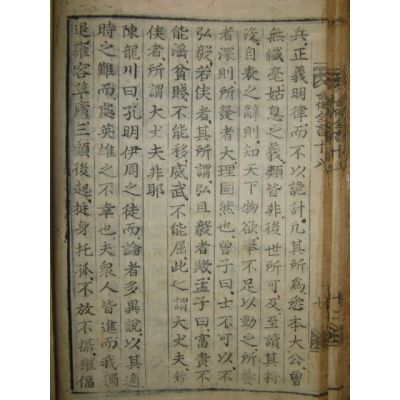 武侯全書十八
兵正義明律而不以詭計凡其所為悉本大公曾
無纖毫姑息之義類皆非後世所可及至讀其將
沒自表之辭則知天下物欲舉不足以動之所養
者深則所發者大理固然也曾子曰士不可以不
弘毅若侯者其所謂弘且毅者歟孟子曰富貴不
能淫貧賤不能移威武不能屈此之謂大丈夫若
侯者所謂大丈夫非耶
陳龍川曰孔明伊周之徒而論者多異說以其適
時之難而處英雄之不幸也夫衆人皆進而我獨
退雍容草廬三顧後起挺身托孤不放不攝權偪